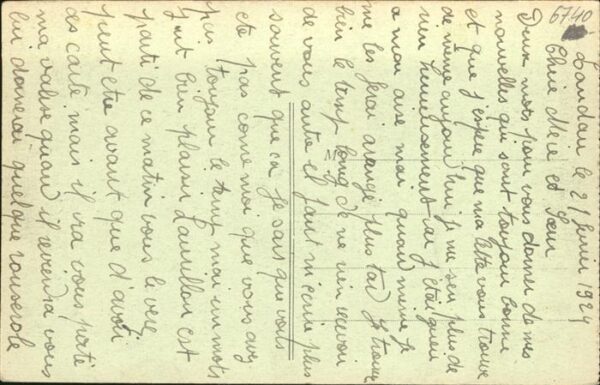 6740
Landau le 21 Juin 1924
Chère Mère et Sœur
Deux mots pour vous donner de mes
nouvelles qui sont toujour bonne
et que j'espere que ma lettre vous trouve
de meme aujour hui je ne sen plus de
rien heureusement car j'etai guer
a mon aise mai quand meme je
me les ferai arangé plus tard Je trouve
bien le temp long de ne rien recevoir
de vous autre il faut m'ecrire plus
souvent que ca je sais que vous
ete pas come moi que vous avez
pas toujour le temt mai un mots
fait bien plaisir est
parti de ce matin vous le verez
peut etre avant que d'avoir
les carte mais il ira vous porté
ma valise quan il reviendra vous
lui donnerai quelque rousserole